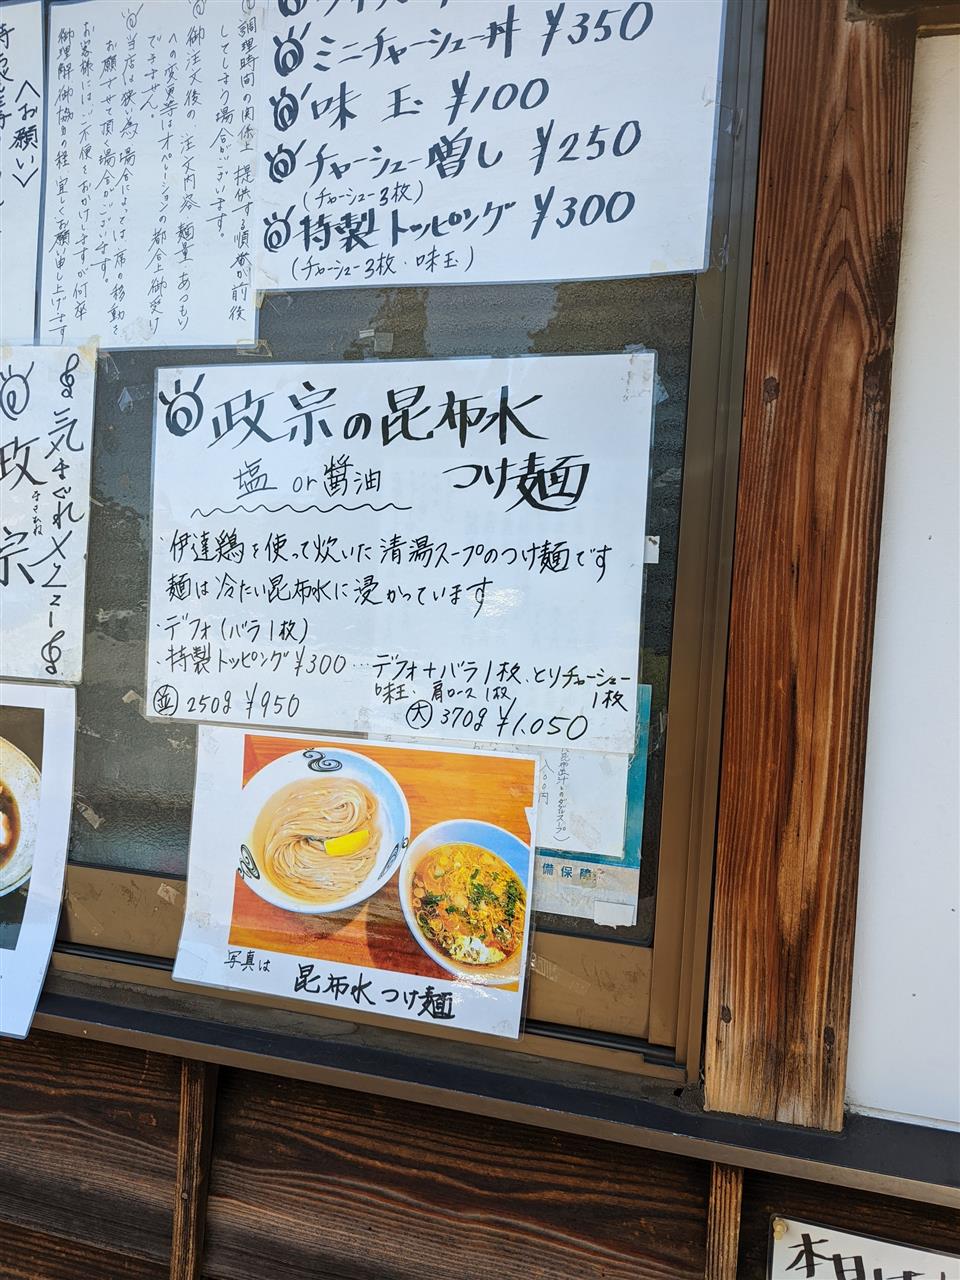 ミニチャーシュー丼 ¥350
味玉 ¥100
チャーシュー増し ¥250
(チャーシュー3枚)
特製トッピング ¥300
(チャーシュー3枚・味玉)
調理時間の関係上 提供する順番が前後
してしまう場合がございます。
御注文後の、注文内容、麺量、あつもり
への変更等はオペレーションの都合上御受け
できません。
当店は狭い為、場合によっては席の移動を
お願させて頂く場合がございます。
お客様にはご不便をおかけしますが何卒
御理解御協力の程、宜しくお願い申し上げます
<お願い>
気まぐれメニュー
政宗
まさむね
政宗の昆布水
つけ麺
塩 or 醤油
・伊達鶏を使って炊いた清湯スープのつけ麺です
麺は冷たい昆布水に浸かっています
・デフォ(バラ1枚)
・特製トッピング¥300…デフォ+バラ1枚、とりチャーシュー1枚
味玉、肩ロース1枚
並 250g ¥950
大 370g ¥1,050
写真は
昆布水つけ麺
備保障
本日